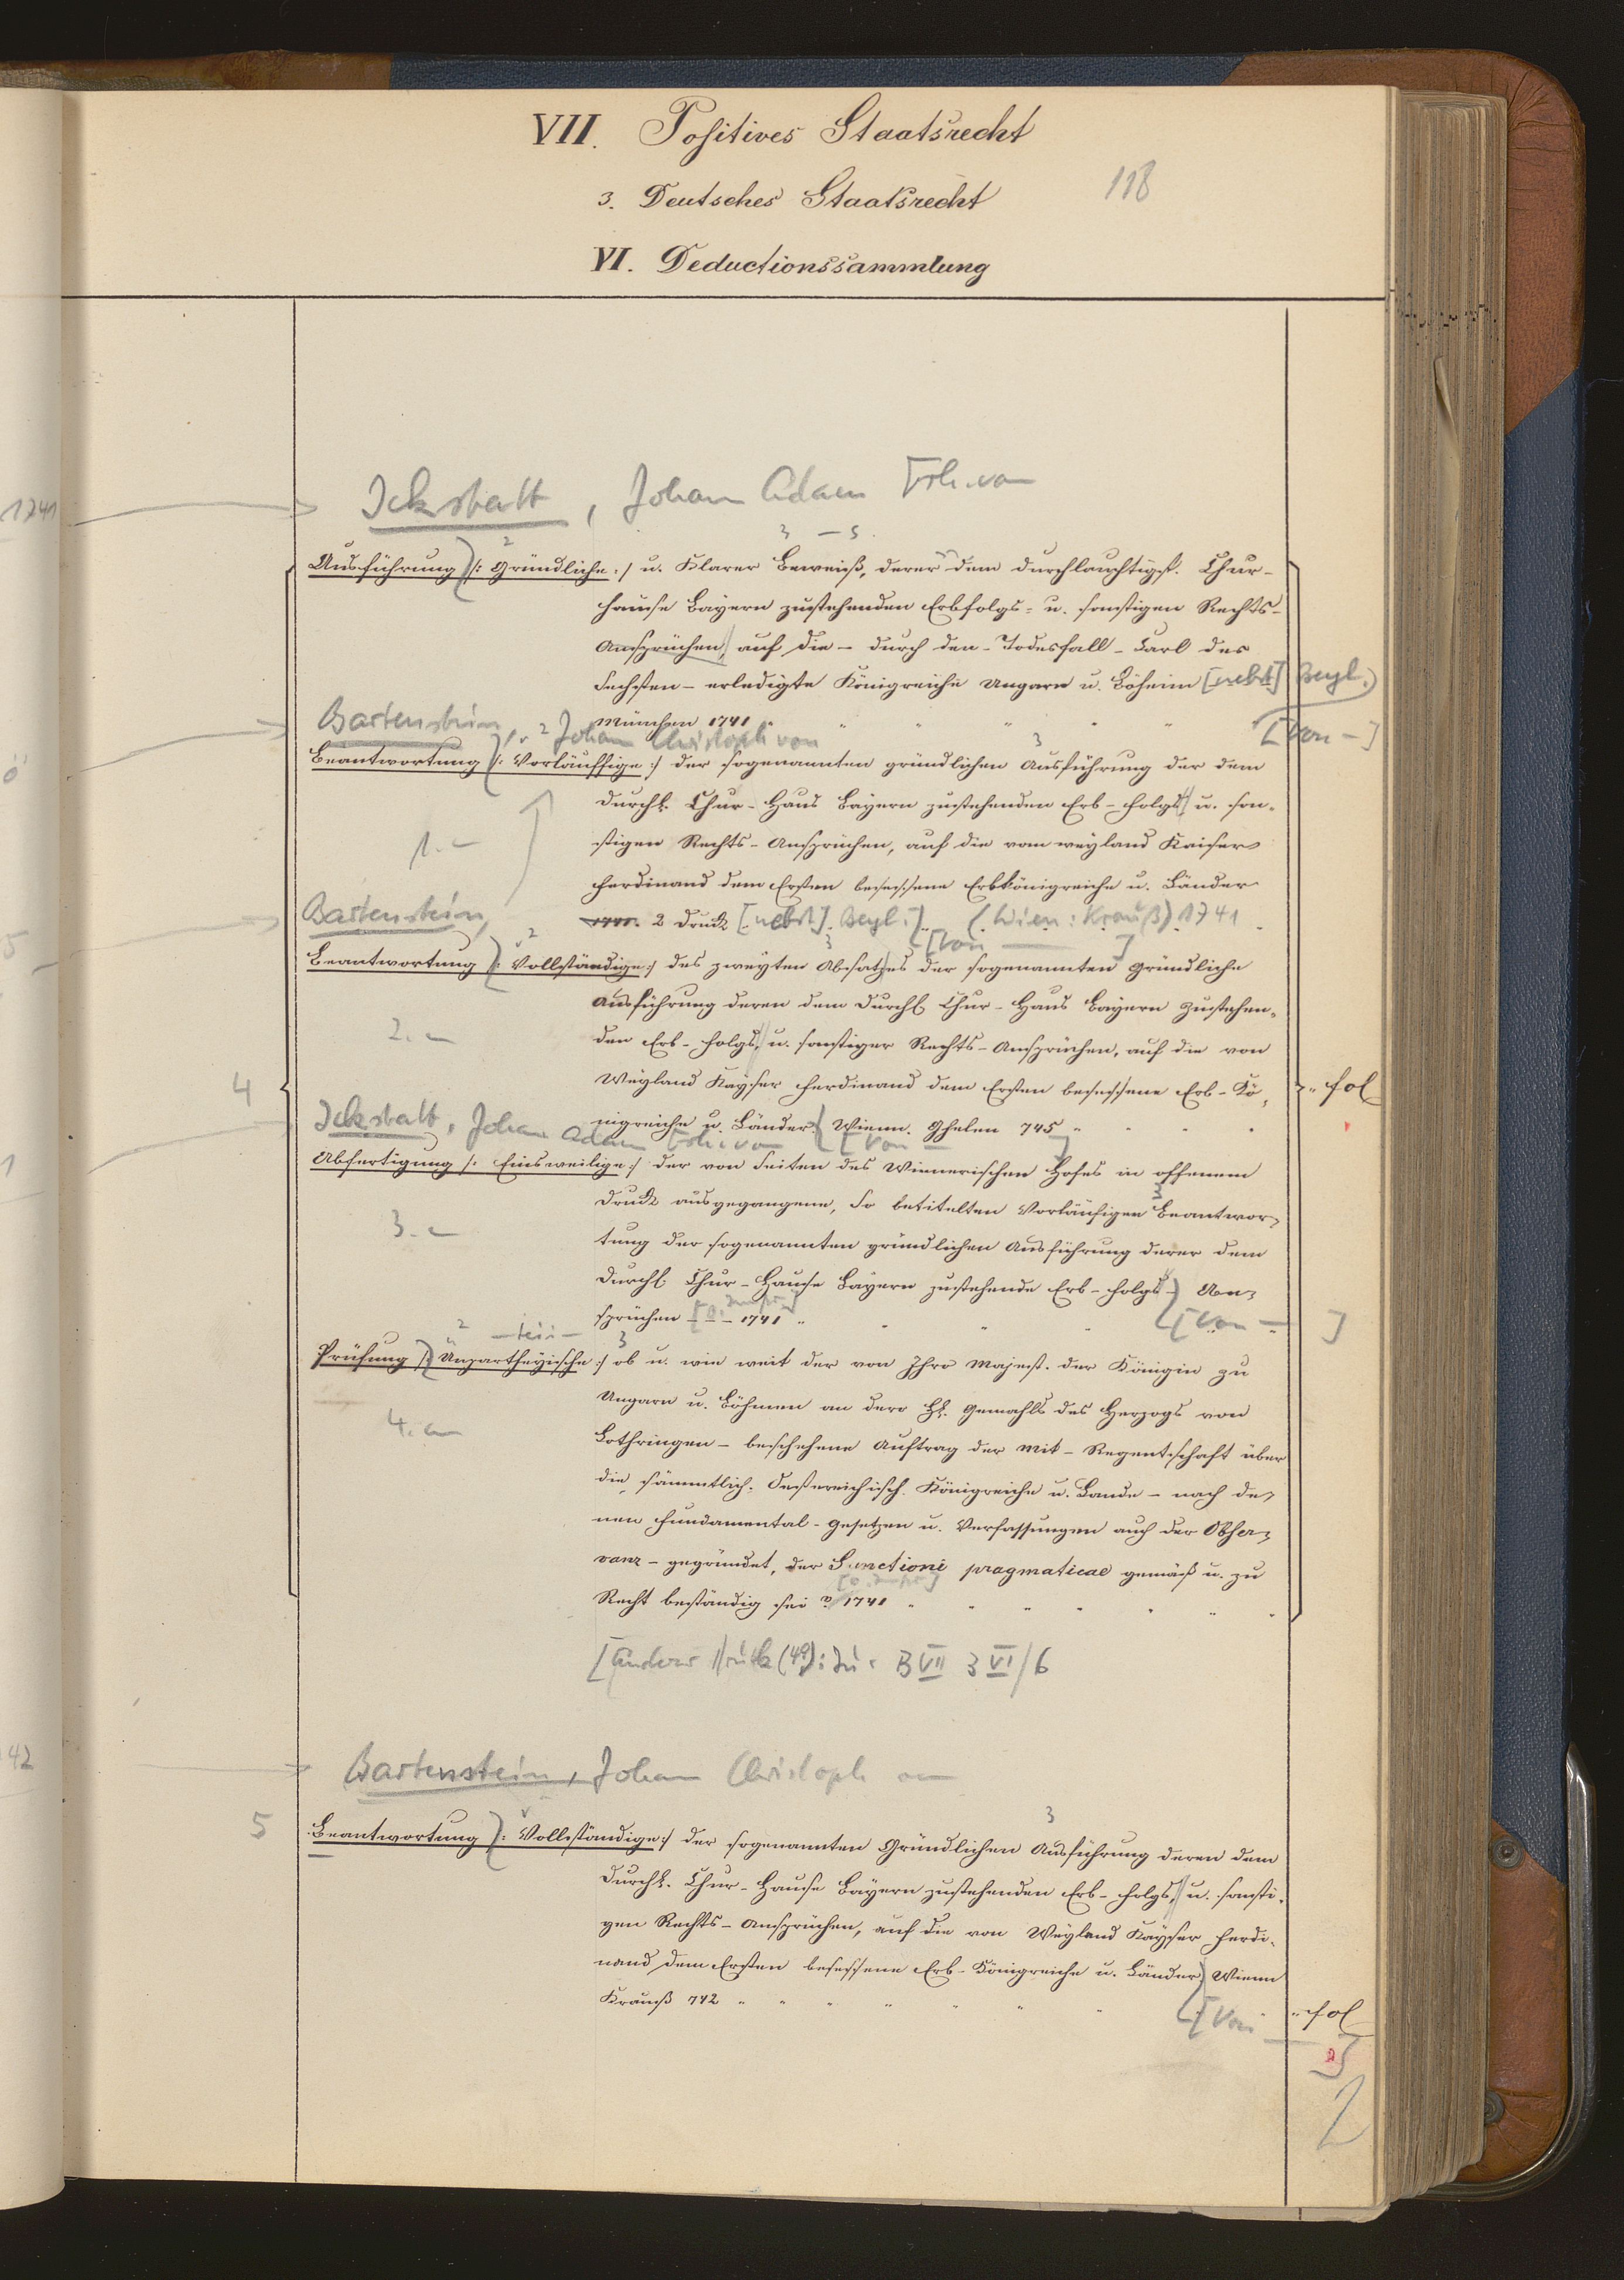 VII. Positives Staatsrecht
3. Deutsches Staatsrecht
118
VI. Deductionssammlung
1741
Ickstatt, Johann Adam Frh. von
3 – 5.
Ausführung /: Gründliche :/ u. Klarer Beweiß, derer dem durchlauchtigst. Chur-
hause Bayern zustehenden Erbfolgs- u. sonstigen Rechts-
Ansprüchen, auf die – durch den – Todesfall – Carl des
Sechsten – erledigte Königreiche Ungarn u. Böheim [nebst] Beyl.
München 1741
[Von –]
Bartenstein, Johann Christoph von
Beantwortung /: Vorläuffige :/ der sogenannten gründlichen Ausführung der dem
durchl. Chur-Haus Bayern zustehenden Erb-Folgs u. son-
stigen Rechts-Ansprüchen, auf die vom weyland Kaiser
Ferdinand dem Ersten besessene Erbkönigreiche u. Länder
2 Druck [nebst] Beyl. (Wien: Krauß) 1741
1. –
Bartenstein,
[Von –]
Beantwortung /: Vollständige :/ des zweyten Absatzes der sogenannten gründliche
Ausführung deren dem Durchl Chur-Haus Bayern zustehen-
den Erb-Folgs, u. sonstiger Rechts-Ansprüchen, auf die von
Weyland Kayser Ferdinand dem Ersten besessene Erb-Kö-
nigreiche u. Länder. Wienn. Ghelen 745
2. –
4
fol
Ickstatt, Johann Adam Frh. von [Von –]
Abfertigung /: Einsweilige :/ der von Seiten des Wienerischen Hofes in offenem
Druck ausgegangene, so betitelten Vorläufigen Beantwor-
tung der sogenannten gründlichen Ausführung derer dem
Durchl. Chur-Hause Bayern zustehende Erb-Folgs – An-
sprüchen 1741
[Von –]
3. –
Prüfung /: Unpartheyische :/ ob u. wie weit der von Ihro Majest. der Königin zu
Ungarn u. Böhmen an dero H. Gemahls des Herzogs von
Lothringen – beschehene Auftrag der Mit-Regentschaft über
die sämmtlich. Oesterreichisch. Königreiche u. Lande – nach de-
nen Fundamental-Gesetzen u. Verfassungen auch der Obser-
vanz – gegründet, der Sanctioni pragmaticae gemäß u. zu
Recht beständig sei 1741
4. –
[Andere Stück (4°): In: B VII 3 VI/6
42
Bartenstein, Johann Christoph von
5
Beantwortung /: Vollständige :/ der sogenannten Gründlichen Ausführung deren dem
Durchl. Chur-Hause Bayern zustehenden Erb-Folgs, u. sonsti-
gen Rechts-Ansprüchen, auf die von Weyland Kayser Ferdi-
nand dem Ersten besessene Erb-Königreiche u. Länder, Wienn
Krauß 742
[Von –]
fol
2